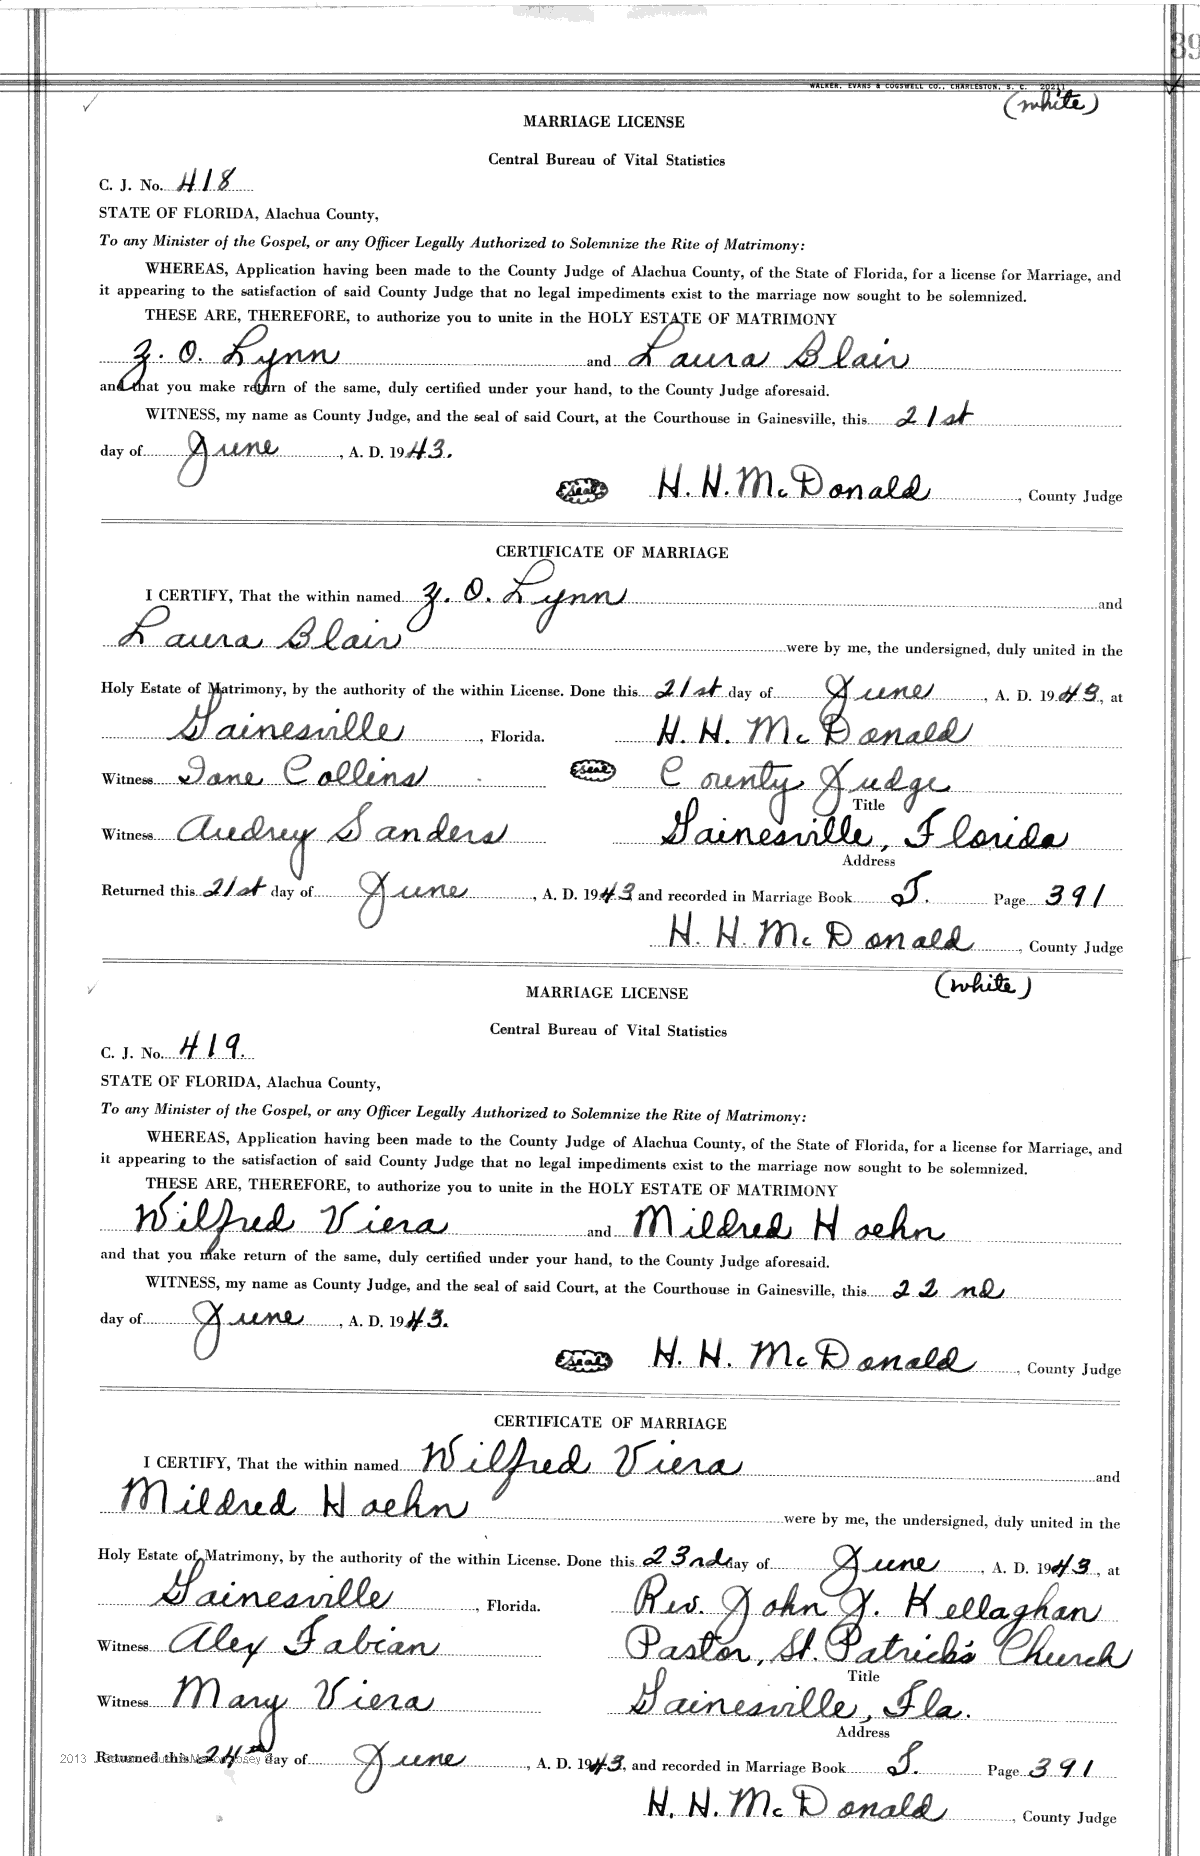 39
WALKER, EVANS & COGSWELL CO., CHARLESTON, S. C. 2021
(white)
MARRIAGE LICENSE
Central Bureau of Vital Statistics
C. J. No. 418
STATE OF FLORIDA, Alachua County,
To any Minister of the Gospel, or any Officer Legally Authorized to Solemnize the Rite of Matrimony:
WHEREAS, Application having been made to the County Judge of Alachua County, of the State of Florida, for a license for Marriage, and
it appearing to the satisfaction of said County Judge that no legal impediments exist to the marriage now sought to be solemnized.
THESE ARE, THEREFORE, to authorize you to unite in the HOLY ESTATE OF MATRIMONY
Z. O. Lynn and Laura Blair
and that you make return of the same, duly certified under your hand, to the County Judge aforesaid.
WITNESS, my name as County Judge, and the seal of said Court, at the Courthouse in Gainesville, this 21st
day of June, A. D. 1943.
(seal) H. H. McDonald, County Judge
CERTIFICATE OF MARRIAGE
I CERTIFY, That the within named Z. O. Lynn and
Laura Blair were by me, the undersigned, duly united in the
Holy Estate of Matrimony, by the authority of the within License. Done this 21st day of June, A. D. 1943, at
Gainesville, Florida. H. H. McDonald
Witness Jane Collins (seal) County Judge
Title
Witness Audrey Sanders Gainesville, Florida
Address
Returned this 21st day of June, A. D. 1943 and recorded in Marriage Book T. Page 391
H. H. McDonald, County Judge
(white)
MARRIAGE LICENSE
Central Bureau of Vital Statistics
C. J. No. 419.
STATE OF FLORIDA, Alachua County,
To any Minister of the Gospel, or any Officer Legally Authorized to Solemnize the Rite of Matrimony:
WHEREAS, Application having been made to the County Judge of Alachua County, of the State of Florida, for a license for Marriage, and
it appearing to the satisfaction of said County Judge that no legal impediments exist to the marriage now sought to be solemnized.
THESE ARE, THEREFORE, to authorize you to unite in the HOLY ESTATE OF MATRIMONY
Wilfred Viera and Mildred Hoehn
and that you make return of the same, duly certified under your hand, to the County Judge aforesaid.
WITNESS, my name as County Judge, and the seal of said Court, at the Courthouse in Gainesville, this 22nd
day of June, A. D. 1943.
(seal) H. H. McDonald, County Judge
CERTIFICATE OF MARRIAGE
I CERTIFY, That the within named Wilfred Viera and
Mildred Hoehn were by me, the undersigned, duly united in the
Holy Estate of Matrimony, by the authority of the within License. Done this 23rd day of June, A. D. 1943, at
Gainesville, Florida. Rev. John J. Kellaghan
Witness Alex Fabian Pastor, St. Patrick's Church
Title
Witness Mary Viera Gainesville, Fla.
Address
2013
Returned this 24th day of June, A. D. 1943, and recorded in Marriage Book T. Page 391
H. H. McDonald, County Judge